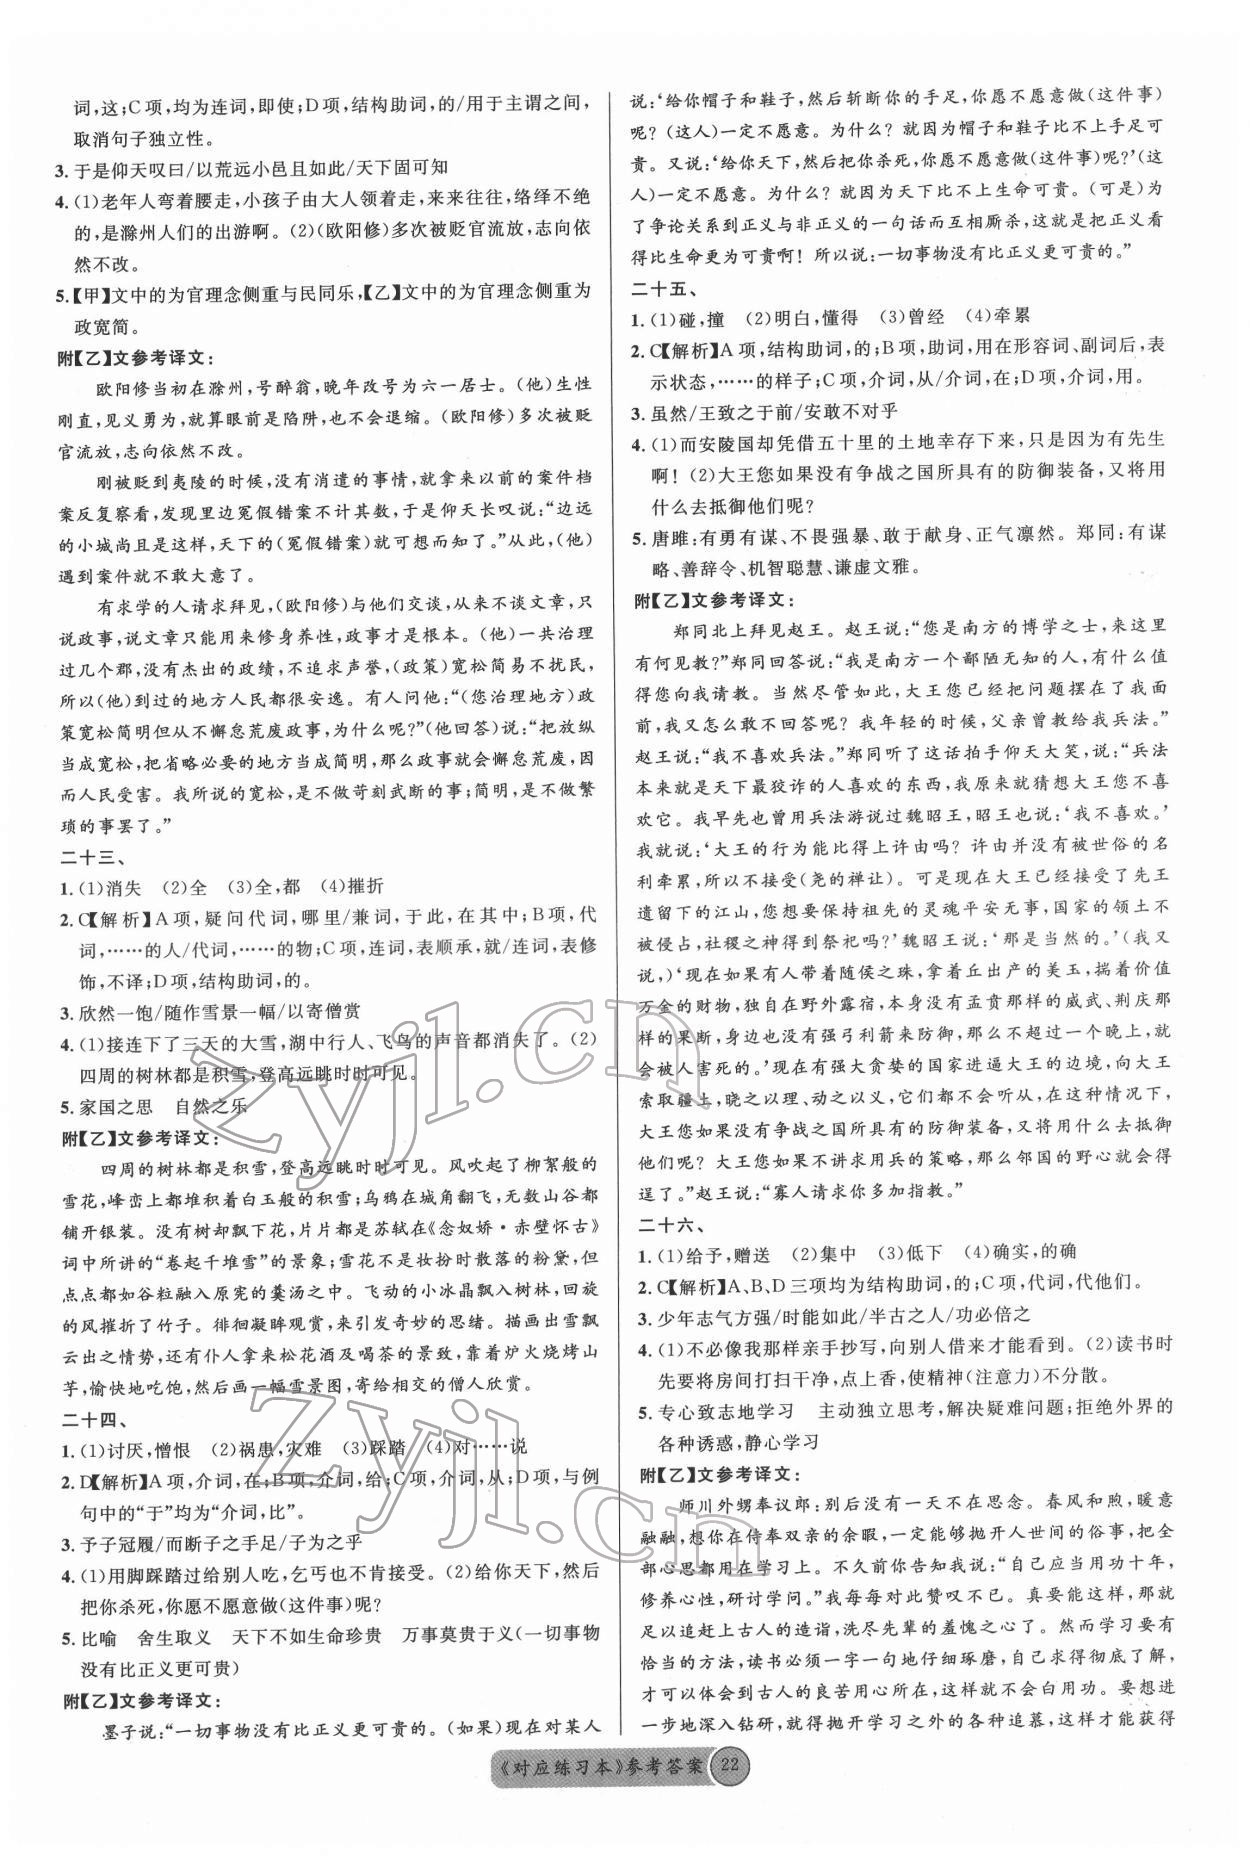 词,这;C项,均为连词,即使;D项,结构助词,的/用于主谓之间,
取消句子独立性。
3. 于是仰天叹曰/以荒远小邑且如此/天下固可知
4. (1)老年人弯着腰走,小孩子由大人领着走,来来往往,络绎不绝
的,是滁州人们的出游啊。(2)(欧阳修)多次被贬官流放,志向依
然不改。
5.【甲】文中的为官理念侧重与民同乐,【乙】文中的为官理念侧重为
政宽简。
附【乙】文参考译文:
欧阳修当初在滁州,号醉翁,晚年改号为六一居士。(他)生性
刚直,见义勇为,就算眼前是陷阱,也不会退缩。(欧阳修)多次被贬
官流放,志向依然不改。
刚被贬到夷陵的时候,没有消遣的事情,就拿来以前的案件档
案反复察看,发现里边冤假错案不计其数,于是仰天长叹说:“边远
的小城尚且是这样,天下的(冤假错案)就可想而知了。”从此,(他)
遇到案件就不敢大意了。
有求学的人请求拜见,(欧阳修)与他们交谈,从来不谈文章,只
说政事,说文章只能用来修身养性,政事才是根本。(他)一共治理
过几个郡,没有杰出的政绩,不追求声誉,(政策)宽松简易不扰民,
所以(他)到过的地方人民都很安逸。有人问他:“(您治理地方)政
策宽松简明但从不懈怠荒废政事,为什么呢?”(他回答)说:“把放纵
当成宽松,把省略必要的地方当成简明,那么政事就会懈怠荒废,因
而人民受害。我所说的宽松,是不做苛刻武断的事;简明,是不做繁
琐的事罢了。”
二十三、
1. (1)消失 (2)全 (3)全,都 (4)摧折
2. C【解析】A项,疑问代词,哪里/兼词,于此,在其中;B项,代
词,……的人/代词,……的物;C项,连词,表顺承,就/连词,表修
饰,不译;D项,结构助词,的。
3. 欣然一饱/随作雪景一幅/以寄僧赏
4. (1)接连下了三天的大雪,湖中行人、飞鸟的声音都消失了。(2)
四周的树林都是积雪,登高远眺时时可见。
5. 家国之思 自然之乐
附【乙】文参考译文:
四周的树林都是积雪,登高远眺时时可见。风吹起了柳絮般的
雪花,峰峦上都堆积着白玉般的积雪;乌鸦在城角翻飞,无数山谷都
铺开银装。没有树却飘下花,片片都是苏轼在《念奴娇·赤壁怀古》
词中所讲的“卷起千堆雪”的景象;雪花不是妆扮时散落的粉黛,但
点点都如谷粒融入原宪的羹汤之中。飞动的小冰晶飘入树林,回旋
的风摧折了竹子。徘徊凝眸观赏,来引发奇妙的思绪。描画出雪飘
云出之情势,还有仆人拿来松花酒及喝茶的景致,靠着炉火烧烤山
芋,愉快地吃饱,然后画一幅雪景图,寄给相交的僧人欣赏。
二十四、
1. (1)讨厌,憎恨 (2)祸患,灾难 (3)踩踏 (4)对……说
2. D【解析】A项,介词,在;B项,介词,给;C项,介词,从;D项,与例
句中的“于”均为“介词,比”。
3. 予子冠履/而断子之手足/子为之乎
4. (1)用脚踩踏过给别人吃,乞丐也不肯接受。(2)给你天下,然后
把你杀死,你愿不愿意做(这件事)呢?
5. 比喻 舍生取义 天下不如生命珍贵 万事莫贵于义(一切事物
没有比正义更可贵)
附【乙】文参考译文:
墨子说:“一切事物没有比正义更可贵的。(如果)现在对某人
说:‘给你帽子和鞋子,然后斩断你的手足,你愿不愿意做(这件事)
呢?(这人)一定不愿意。为什么?就因为帽子和鞋子比不上手足可
贵。又说:‘给你天下,然后把你杀死,你愿不愿意做(这件事)呢?’(这
人)一定不愿意。为什么?就因为天下比不上生命可贵。(可是)为
了争论关系到正义与非正义的一句话而互相厮杀,这就是把正义看
得比生命更为可贵啊!所以说:一切事物没有比正义更可贵的。”
二十五、
1. (1)碰,撞 (2)明白,懂得 (3)曾经 (4)牵累
2. C【解析】A项,结构助词,的;B项,助词,用在形容词、副词后,表
示状态,……的样子;C项,介词,从/介词,在;D项,介词,用。
3. 虽然/王致之于前/安敢不对乎
4. (1)而安陵国却凭借五十里的土地幸存下来,只是因为有先生
啊!(2)大王您如果没有争战之国所具有的防御装备,又将用
什么去抵御他们呢?
5. 唐雎:有勇有谋、不畏强暴、敢于献身、正气凛然。郑同:有谋
略、善辞令、机智聪慧、谦虚文雅。
附【乙】文参考译文:
郑同北上拜见赵王。赵王说:“您是南方的博学之士,来这里
有何见教?”郑同回答说:“我是南方一个鄙陋无知的人,有什么值
得您向我请教。当然尽管如此,大王您已经把问题摆在了我面
前,我又怎么敢不回答呢?我年轻的时候,父亲曾教给我兵法。”
赵王说:“我不喜欢兵法。”郑同听了这话拍手仰天大笑,说:“兵法
本来就是天下最狡诈的人喜欢的东西,我原来就猜想大王您不喜
欢它。我早先也曾用兵法游说过魏昭王,昭王也说:‘我不喜欢。’
我就说:‘大王的行为能比得上许由吗?许由并没有被世俗的名
利牵累,所以不接受(尧的禅让)。可是现在大王已经接受了先王
遗留下的江山,您想要保持祖先的灵魂平安无事,国家的领土不
被侵占,社稷之神得到祭祀吗?’魏昭王说:‘那是当然的。’(我又
说,)‘现在如果有人带着随侯之珠,拿着丘出产的美玉,揣着价值
万金的财物,独自在野外露宿,本身没有孟贲那样的威武、荆庆那
样的果断,身边也没有强弓利箭来防御,那么不超过一个晚上,就
会被人害死的。’现在有强大贪婪的国家进逼大王的边境,向大王
索取疆土,晓之以理、动之以义,它们都不会听从,在这种情况下,
大王您如果没有争战之国所具有的防御装备,又将用什么去抵御
他们呢?大王您如果不讲求用兵的策略,那么邻国的野心就会得
逞了。”赵王说:“寡人请求你多加指教。”
二十六、
1. (1)给予,赠送 (2)集中 (3)低下 (4)确实,的确
2. C【解析】A、B、D三项均为结构助词,的;C项,代词,代他们。
3. 少年志气方强/时能如此/半古之人/功必倍之
4. (1)不必像我那样亲手抄写,向别人借来才能看到。(2)读书时
先要将房间打扫干净,点上香,使精神(注意力)不分散。
5. 专心致志地学习 主动独立思考,解决疑难问题;拒绝外界的
各种诱惑,静心学习
附【乙】文参考译文:
师川外甥奉议郎:别后没有一天不在思念。春风和煦,暖意
融融,想你在侍奉双亲的余暇,一定能够抛开人世间的俗事,把全
部心思都用在学习上。不久前你告知我说:“自己应当用功十年,
修养心性,研讨学问。”我每每对此赞叹不已。真要能这样,那就
足以追赶上古人的造诣,洗尽先辈的羞愧之心了。然而学习要有
恰当的方法,读书必须一字一句地仔细琢磨,自己求得彻底了解,
才可以体会到古人的良苦用心所在,这样就不会白用功。要想进
一步地深入钻研,就得抛开学习之外的各种追慕,这样才能获得
《对应练习本》参考答案 22
zyjl.cn
zyjl.cn